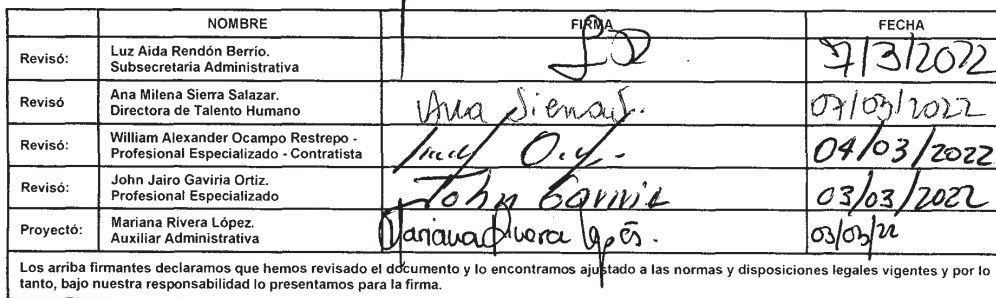 NOMBRE FIRMA FECHA
Revisó: Luz Aida Rendón Berrío.
Subsecretaria Administrativa 7/3/2022
Revisó Ana Milena Sierra Salazar.
Directora de Talento Humano Ana Sierra S. 07/03/2022
Revisó: William Alexander Ocampo Restrepo -
Profesional Especializado - Contratista 04/03/2022
Revisó: John Jairo Gaviria Ortiz.
Profesional Especializado John Gaviria 03/03/2022
Proyectó: Mariana Rivera López.
Auxiliar Administrativa Mariana Rivera López. 03/03/22
Los arriba firmantes declaramos que hemos revisado el documento y lo encontramos ajustado a las normas y disposiciones legales vigentes y por lo
tanto, bajo nuestra responsabilidad lo presentamos para la firma.